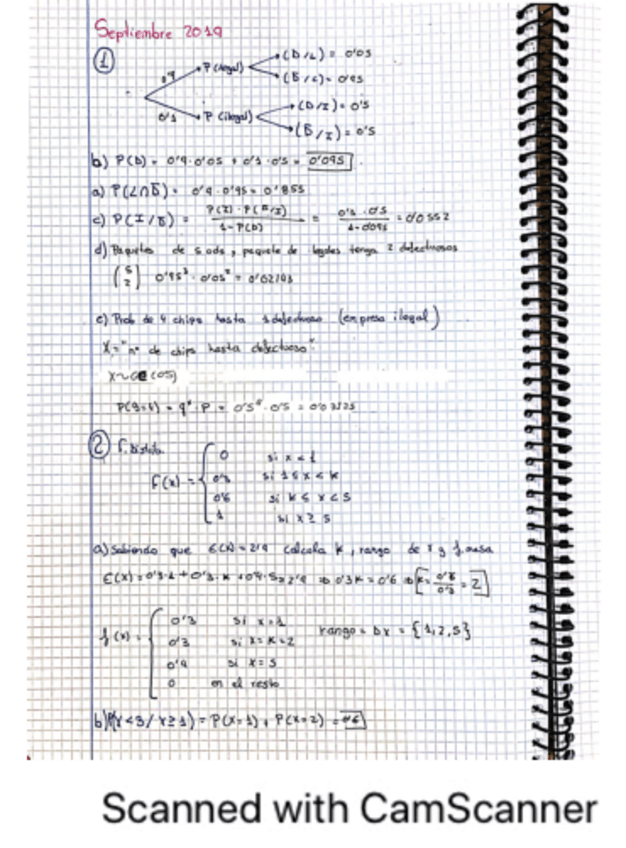 Septiembre 2019
1
0'9 P(legal) (D/L) = 0'05
(D̄/L) = 0'95
0'1 P(ilegal) (D/I) = 0'5
(D̄/I) = 0'5
b) P(D) = 0'9·0'05 + 0'1·0'5 = 0'095
a) P(L∩D̄) = 0'9·0'95 = 0'855
c) P(I/D̄) = P(I)·P(D̄/I) / 1-P(D) = 0'1·0'5 / 1-0'095 = 0'0552
d) Paquetes de 5 uds, paquete de legales tenga 2 defectuosos
(5 2) 0'95³·0'05² = 0'02143
e) Prob de 4 chips hasta 1 defectuoso (empresa ilegal)
X = "nº de chips hasta defectuoso"
X~GE(0'5)
= 0'03125
2 F. Distrib.
F(x) = 0 si x < 1
0'3 si 1 ≤ x < k
0'6 si k ≤ x < 5
1 si x ≥ 5
a) Sabiendo que E(x) = 2'9 calcula k, rango de x y f. masa
E(x) = 0'3·1 + 0'3·k + 0'4·5 = 2'9 ⇒ 0'3k = 0'6 ⇒ k = 0'6/0'3 = 2
f(x) = 0'3 si x = 1
0'3 si x = k = 2
0'4 si x = 5
0 en el resto
rango = Dx = {1,2,5}
b) P(x<3/x≥1) = P(x=1) + P(x=2) = 0'6
Scanned with CamScanner